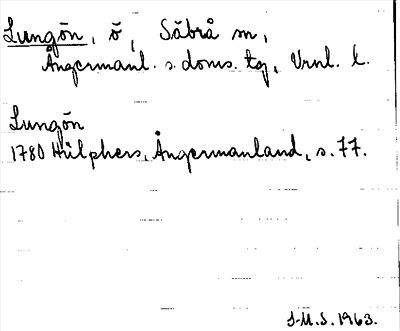 Lungön, ö, Säbrå sn,
Ångermanl. s. doms. tg, Vrnl. l.
Lungön
1780 Hülphers, Ångermanland, s. 77.
S-M.S. 1963.